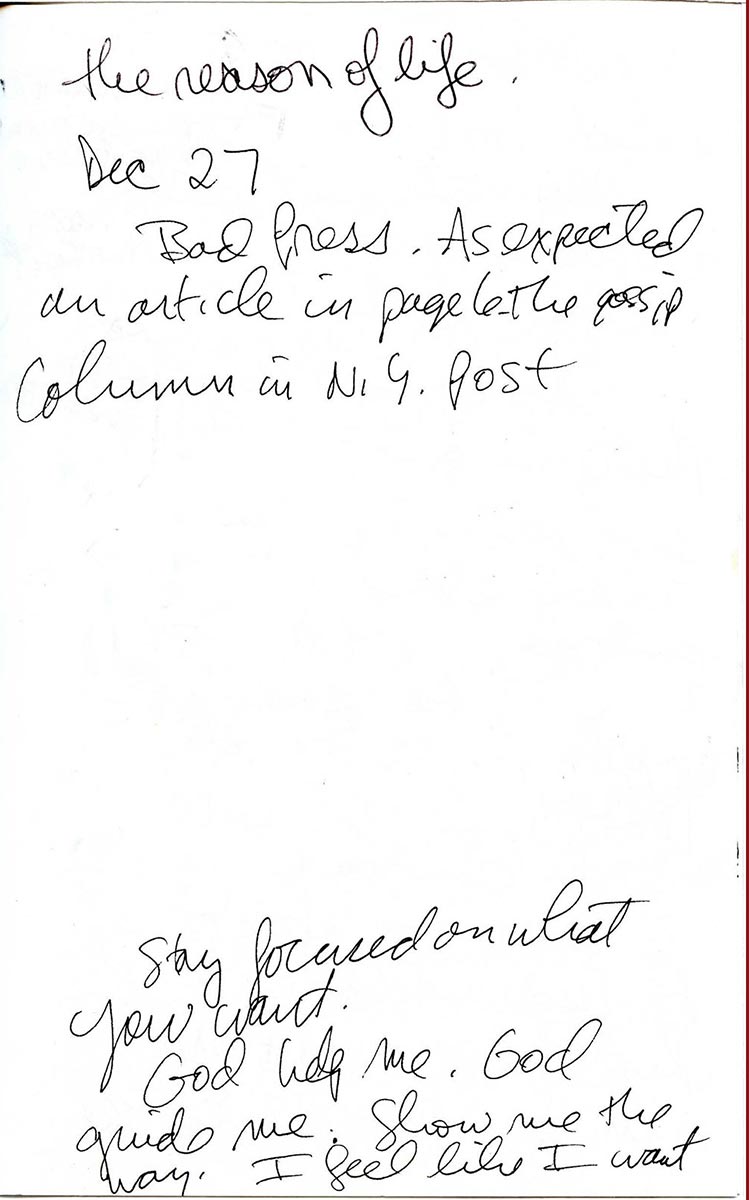 the reason of life.
Dec 27
Bad press. As expected
an article in page 6-the gossip
Column in N.Y. Post
Stay focused on what
you want.
God help me. God
guide me. Show me the
way. I feel like I want